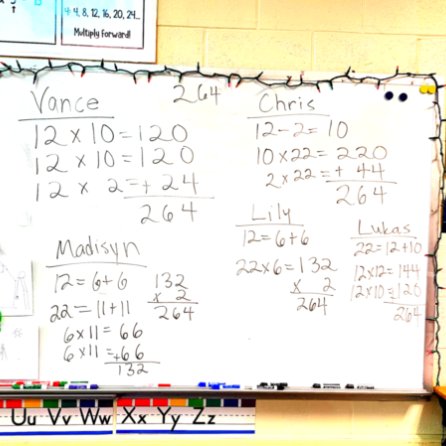 4: 4, 8, 12, 16, 20, 24...
Multiply forward!
264
Vance
12 x 10 = 120
12 x 10 = 120
12 x 2 = + 24
264
Chris
12 - 2 = 10
10 x 22 = 220
2 x 22 = + 44
264
Madisyn
12 = 6 + 6
22 = 11 + 11
6 x 11 = 66
6 x 11 = +66
132
132
x 2
264
Lily
12 = 6 + 6
22 x 6 = 132
x 2
264
Lukas
22 = 12 + 10
12 x 12 = 144
12 x 10 = 120
264
Uu Vv Ww Xx Yy Zz